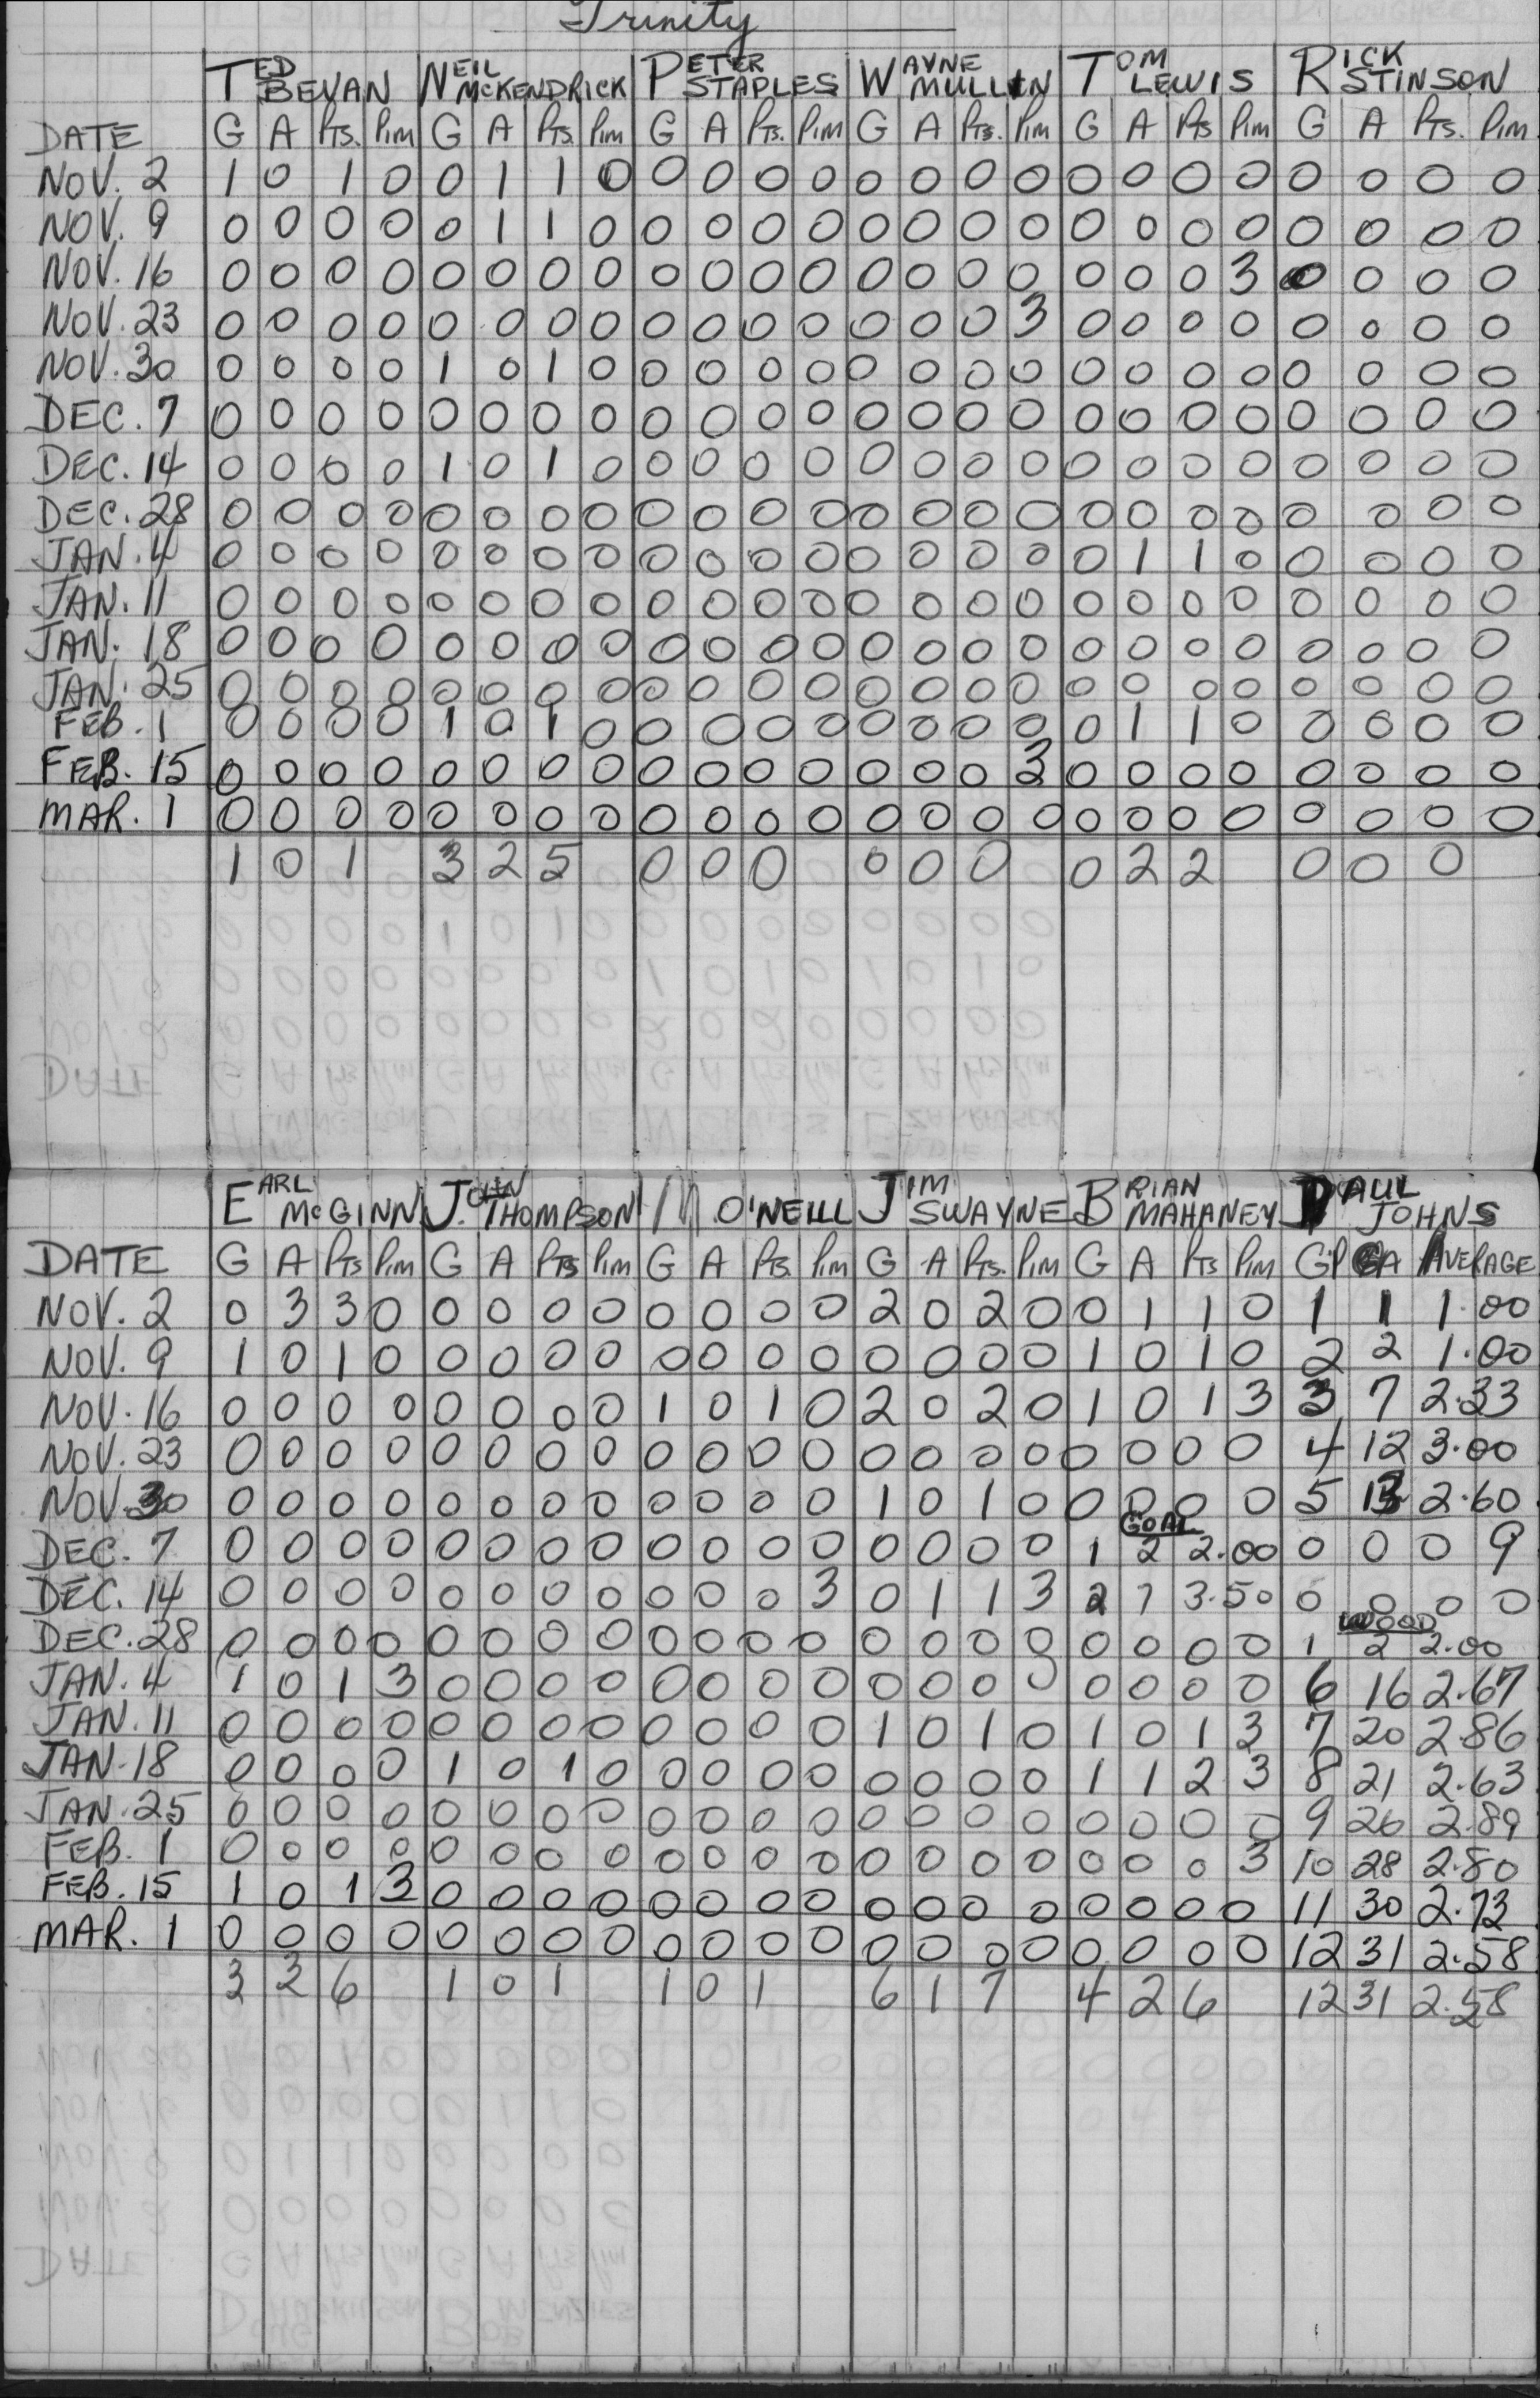 Trinity
TED BEVAN NEIL McKENDRICK PETER STAPLES WAYNE MULLIN TOM LEWIS RICK STINSON
DATE G A PTS. PIM G A PTS. PIM G A PTS. PIM G A PTS. PIM G A PTS PIM G A PTS. PIM
NOV. 2 1 0 1 0 0 1 1 0 0 0 0 0 0 0 0 0 0 0 0 0 0 0 0 0
NOV. 9 0 0 0 0 0 1 1 0 0 0 0 0 0 0 0 0 0 0 0 0 0 0 0 0
NOV. 16 0 0 0 0 0 0 0 0 0 0 0 0 0 0 0 0 0 0 0 3 0 0 0 0
NOV. 23 0 0 0 0 0 0 0 0 0 0 0 0 0 0 0 3 0 0 0 0 0 0 0 0
NOV. 30 0 0 0 0 1 0 1 0 0 0 0 0 0 0 0 0 0 0 0 0 0 0 0 0
DEC. 7 0 0 0 0 0 0 0 0 0 0 0 0 0 0 0 0 0 0 0 0 0 0 0 0
DEC. 14 0 0 0 0 1 0 1 0 0 0 0 0 0 0 0 0 0 0 0 0 0 0 0 0
DEC. 28 0 0 0 0 0 0 0 0 0 0 0 0 0 0 0 0 0 0 0 0 0 0 0 0
JAN. 4 0 0 0 0 0 0 0 0 0 0 0 0 0 0 0 0 0 1 1 0 0 0 0 0
JAN. 11 0 0 0 0 0 0 0 0 0 0 0 0 0 0 0 0 0 0 0 0 0 0 0 0
JAN. 18 0 0 0 0 0 0 0 0 0 0 0 0 0 0 0 0 0 0 0 0 0 0 0 0
JAN. 25 0 0 0 0 0 0 0 0 0 0 0 0 0 0 0 0 0 0 0 0 0 0 0 0
FEB. 1 0 0 0 0 1 0 1 0 0 0 0 0 0 0 0 0 0 1 1 0 0 0 0 0
FEB. 15 0 0 0 0 0 0 0 0 0 0 0 0 0 0 0 3 0 0 0 0 0 0 0 0
MAR. 1 0 0 0 0 0 0 0 0 0 0 0 0 0 0 0 0 0 0 0 0 0 0 0 0
1 0 1 3 2 5 0 0 0 0 0 0 0 2 2 0 0 0
EARL McGINN JOHN THOMPSON M. O'NEILL JIM SWAYNE BRIAN MAHANEY PAUL JOHNS
DATE G A PTS PIM G A PTS PIM G A PTS. PIM G A PTS. PIM G A PTS PIM GP GA AVERAGE
NOV. 2 0 3 3 0 0 0 0 0 0 0 0 0 2 0 2 0 0 1 1 0 1 1 1.00
NOV. 9 1 0 1 0 0 0 0 0 0 0 0 0 0 0 0 0 1 0 1 0 2 2 1.00
NOV. 16 0 0 0 0 0 0 0 0 1 0 1 0 2 0 2 0 1 0 1 3 3 7 2.33
NOV. 23 0 0 0 0 0 0 0 0 0 0 0 0 0 0 0 0 0 0 0 0 4 12 3.00
NOV. 30 0 0 0 0 0 0 0 0 0 0 0 0 1 0 1 0 0 0 0 0 5 13 2.60
GOAL
DEC. 7 0 0 0 0 0 0 0 0 0 0 0 0 0 0 0 0 1 2 2.00 0 0 0 9
DEC. 14 0 0 0 0 0 0 0 0 0 0 0 3 0 1 1 3 2 7 3.50 0 0 0 0
WOOD
DEC. 28 0 0 0 0 0 0 0 0 0 0 0 0 0 0 0 0 0 0 0 0 1 2 2.00
JAN. 4 1 0 1 3 0 0 0 0 0 0 0 0 0 0 0 0 0 0 0 0 6 16 2.67
JAN. 11 0 0 0 0 0 0 0 0 0 0 0 0 1 0 1 0 1 0 1 3 7 20 2.86
JAN. 18 0 0 0 0 1 0 1 0 0 0 0 0 0 0 0 0 1 1 2 3 8 21 2.63
JAN. 25 0 0 0 0 0 0 0 0 0 0 0 0 0 0 0 0 0 0 0 0 9 26 2.89
FEB. 1 0 0 0 0 0 0 0 0 0 0 0 0 0 0 0 0 0 0 0 3 10 28 2.80
FEB. 15 1 0 1 3 0 0 0 0 0 0 0 0 0 0 0 0 0 0 0 0 11 30 2.73
MAR. 1 0 0 0 0 0 0 0 0 0 0 0 0 0 0 0 0 0 0 0 0 12 31 2.58
3 3 6 1 0 1 1 0 1 6 1 7 4 2 6 12 31 2.58